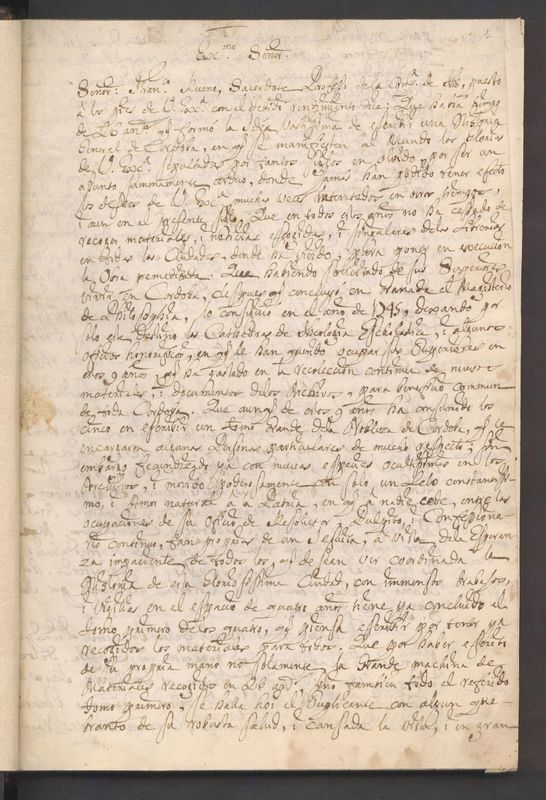 Exc.mo Señor.
Señor: Fran.co Ruano, Sacerdote Professo de la Comp.a de Jhs, puesto
a los pies de V. Exc.a con el devido rendimiento dice: Que havrà tiempo
de 26 an.s q.e formò la Idea vastissima de escribir una Historia
General de Cordova, en q.e se manifiesten al Mundo las glorias
de V. Exc.a sepultadas por tantos siglos en olvido, por ser un
asunto summamente arduo, donde jamas han podido tener efecto
los deseos de V. Exc.a muchas veces intentados en otros tiempos,
i aun en el presente siglo. Que en todos estos años no ha cessado de
recoger materiales, i noticias escogidas, i singulares de los Archivos
en todas las Ciudades, donde ha vivido, para poner en execucion
la Obra premeditada. Que haviendo solicitado de sus Superiores
vivir en Cordova, despues q.e concluyò en Granada el Magisterio
de Philosophia, lo consiguio en el año de 1745, dexando por
solo este destino las Cathedras de Theologia Escholastica, i algunos
oficios honorificos, en q.e le han querido ocupar sus Superiores en
otros 9 años, q.e ha gastado en la recoleccion continua de nuevos
materiales, i documentos de los Archivos, para beneficio commun
de toda Cordova. Que aunq.e de otros 9 años ha consumido los
cinco en escribir un tomo grande de la Nobleza de Cordova, q.e le
encargaron algunas Personas particulares de mucho respecto; sin
embargo fecundizado ya con nuevas especies ocultissimas en los
Archivos, i movido poderosamente de solo un zelo constantissi-
mo, i Amor natural a la Patria, en q.e a nadie cede, entre las
ocupaciones de su Oficio de Resolutor, Pulpito, i Confessiona-
rio continuo, tan proprias de un Jesuita, a vista de la Esperan-
za impaciente de todos los q.e desean ver coordinada la
Historia de esta Gloriosissima Ciudad, con immensos trabajos,
i vigilias en el espacio de quatro años tiene ya concluido el
tomo primero de los quatro, q.e piensa escribir por tener ya
recogidos los materiales para todos. Que por haber escrito
de su propria mano no solamente la grande machina de
Materiales recogidos en 26 an.s sino tambien todo el referido
tomo primero, se halla hoi el Suplicante con algun que-
branto de su robusta salud, i cansada la vista, i en gran